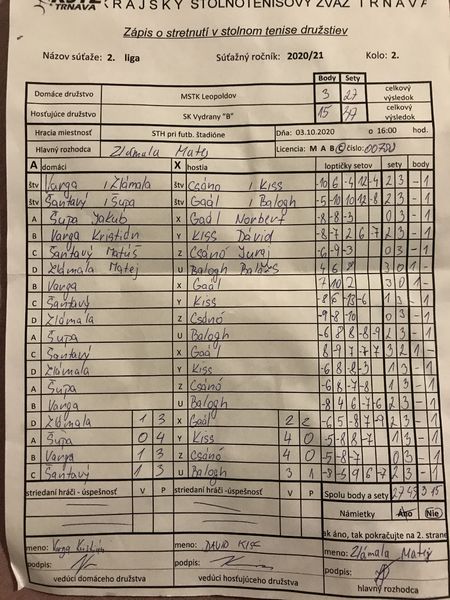 KRAJSKÝ STOLNOTENISOVÝ ZVÄZ TRNAVA
TRNAVA
Zápis o stretnutí v stolnom tenise družstiev
Názov súťaže: 2. liga Súťažný ročník: 2020/21 Kolo: 2.
Body Sety
Domáce družstvo MSTK Leopoldov 3 27 celkový výsledok
Hosťujúce družstvo SK Vydrany "B" 15 celkový výsledok
Hracia miestnosť STH pri futb. štadióne Dňa: 03.10.2020 o 16:00 hod.
Hlavný rozhodca Zlámala Matej Licencia: M A B C číslo:
A domáci X hostia loptičky setov sety body
štv Varga / Zlámala štv Csánó / Kiss -10 6 -4 -12 -4 2 3 - 1
štv Šantavý / Šupa štv Gaál / Balogh -5 -10 10 12 -8 2 3 - 1
A Šupa Jakub X Gaál Norbert -8 -8 -3 0 3 - 1
B Varga Kristián Y Kiss Dávid -8 -7 2 6 -7 2 3 - 1
C Šantavý Matúš Z Csánó Juraj -6 -9 -3 0 3 - 1
D Zlámala Matej U Balogh Balázs 4 6 3 0 1 -
B Varga X Gaál 7 10 2 3 0 1 -
C Šantavý Y Kiss 1 3 - 1
D Zlámala Z Csánó -9 -8 -10 0 3 - 1
A Šupa U Balogh -6 8 8 -8 -9 2 3 - 1
C Šantavý X Gaál 8 -9 7 -7 7 3 2 1 -
D Zlámala Y Kiss -6 8 -8 -3 1 3 - 1
A Šupa Z Csánó -6 8 -7 -8 1 3 - 1
B Varga U Balogh -8 4 6 -7 -6 2 3 - 1
D Zlámala 1 3 X Gaál 2 2 -6 5 -8 7 -9 2 3 - 1
A Šupa 0 4 Y Kiss 4 0 -5 -8 8 -7 1 3 - 1
B Varga 1 3 Z Csánó 4 0 -5 -8 -7 0 3 - 1
C Šantavý 1 3 U Balogh 3 1 2 3 - 1
striedaní hráči - úspešnosť V P striedaní hráči - úspešnosť V P Spolu body a sety 27 3 15
Námietky Áno Nie
ak áno, tak pokračujte na 2. strane
meno: Varga Kristián meno: DAVID KISS meno: Zlámala Matej
podpis: podpis: podpis:
vedúci domáceho družstva vedúci hosťujúceho družstva hlavný rozhodca